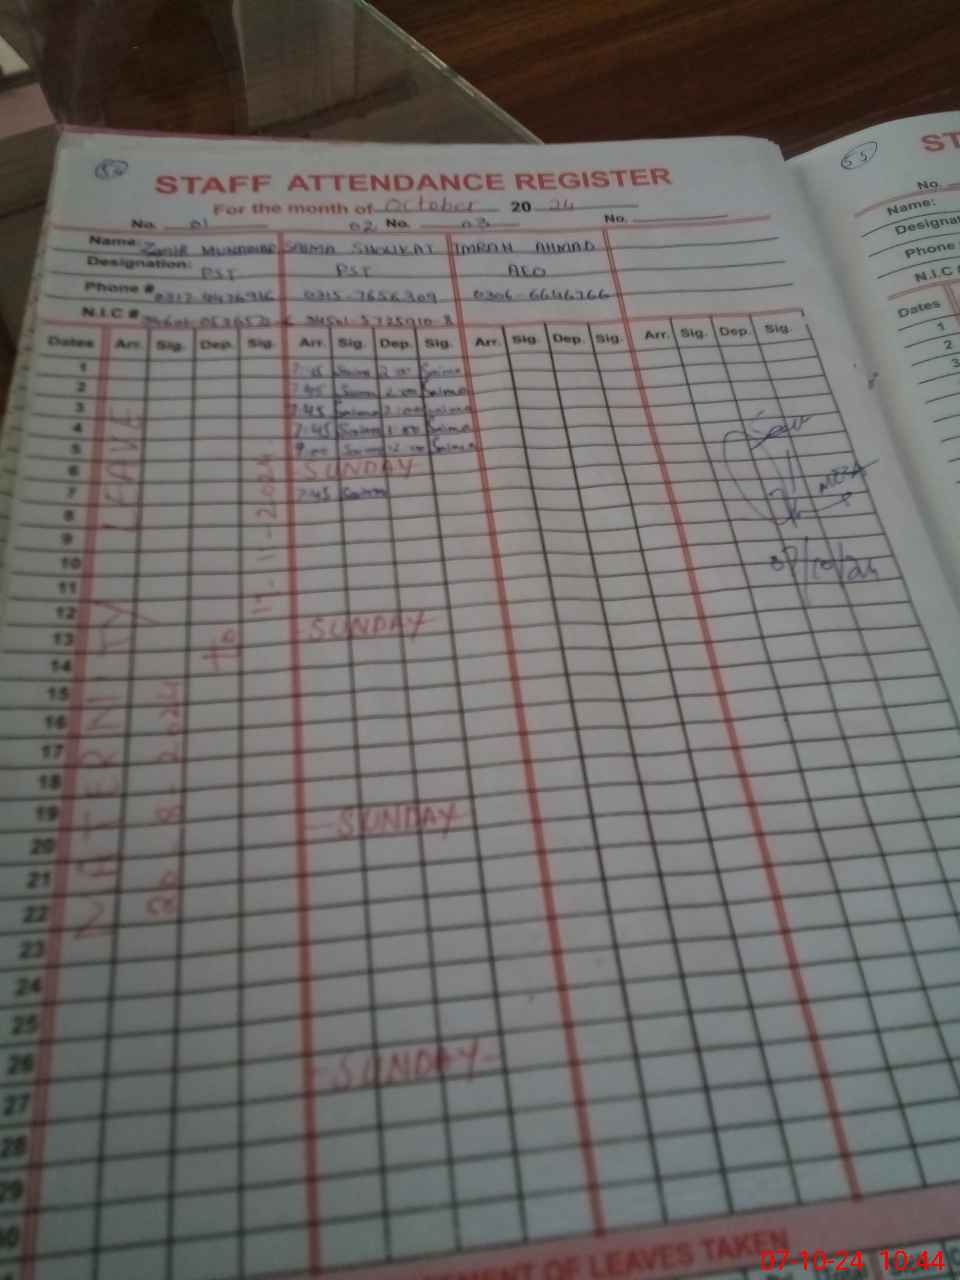 54
STAFF ATTENDANCE REGISTER
For the month of October 20 24
No. 01 02 No. 03 No.
Name: MUSA SAIMA SHOUKAT IMRAN AHMAD
Designation: PST PST AEO
Phone # 0315-7656309 0306-6646766
N.I.C #
Dates Arr. Sig. Dep. Sig. Arr. Sig. Dep. Sig. Arr. Sig. Dep. Sig. Arr. Sig. Dep. Sig.
1 7:45 Saima 2:00 Saima
2 7:45 Saima 2:00 Saima
3 7:45 Saima 2:00 Saima
4 7:45 Saima Saima
5 Saima 2:00 Saima
6 SUNDAY
7 7:45 Saima
8
9
10
11
12
13 SUNDAY
14
15
16
17
18
19
20 SUNDAY
21
22
23
24
25
26
27 SUNDAY
28
29
30
MATERNITY LEAVE
-8-2024 To -11-2024
07/10/24
OF LEAVES TAKEN
55
ST
No.
Name:
Designa
Phone
N.I.C
Dates
1
2
3
07-10-24 10:44